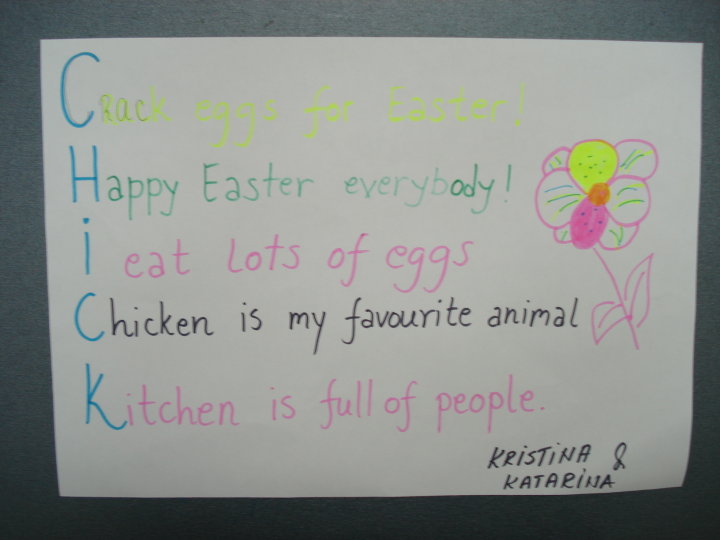 CRack eggs for Easter!
Happy Easter everybody!
i eat lots of eggs
Chicken is my favourite animal
Kitchen is full of people.
KRiSTiNA &
KATARiNA